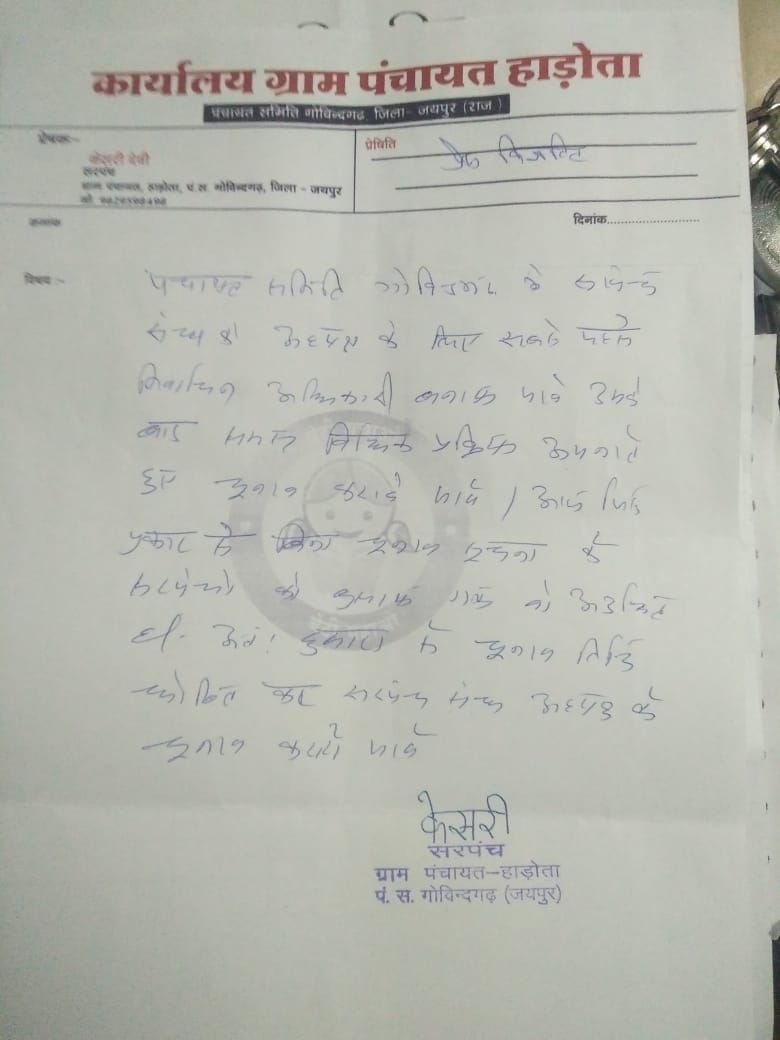 कार्यालय ग्राम पंचायत हाड़ोता
पंचायत समिति गोविन्दगढ़, जिला- जयपुर (राज.)
प्रेषक:-
केसरी देवी
सरपंच
ग्राम पंचायत, हाड़ोता, पं.स. गोविन्दगढ़, जिला - जयपुर
प्रेषिति
प्रेस विज्ञप्ति
क्रमांक
दिनांक
विषय :-
पंचायत समिति गोविन्दगढ़ के सरपंच
संघ के अध्यक्ष के लिए सबसे पहले
निर्वाचन अधिकारी बनाया जावे उसके
बाद समस्त प्रक्रिया अपनाते
हुए चुनाव कराये जावे / आज जिस
प्रकार से बिना चुनाव सूचना के
सरपंचों को गया वो अनुचित
है। अतः दुबारा से चुनाव तिथि
घोषित कर सरपंच संघ अध्यक्ष के
चुनाव कराये जावे
केसरी
सरपंच
ग्राम पंचायत-हाड़ोता
पं. स. गोविन्दगढ़ (जयपुर)